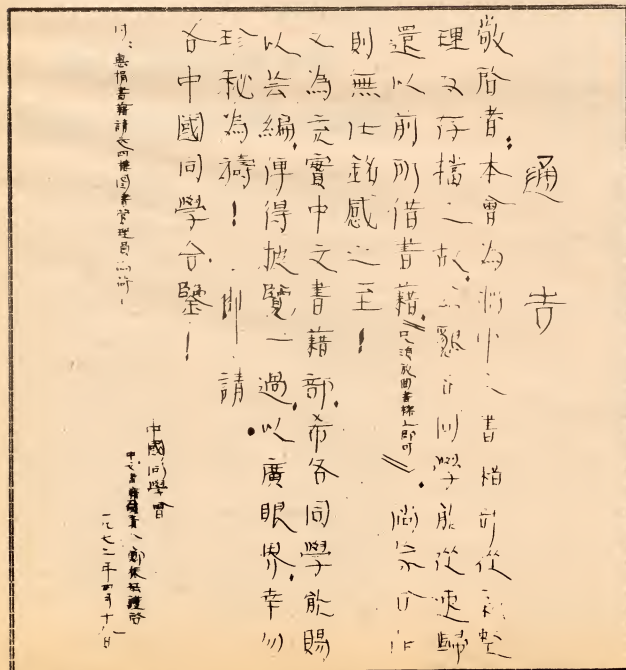 通告
敬啓者:本會為將中文書籍可從新整
理及存檔之故,懇各同學能從速歸
還以前所借書籍,(只須放圖書檯上即可)。倘蒙合作
則無任銘感之至!
又為充實中文書籍部,希各同學能賜
以芸編,俾得披覽一過,以廣眼界,幸勿
珍秘為禱!。 請
各中國同學台鑒!
中國同學會
中文書籍負責人 謹啓
一九七二年四月十一日
付:惠捐書籍請交四樓圖書管理員